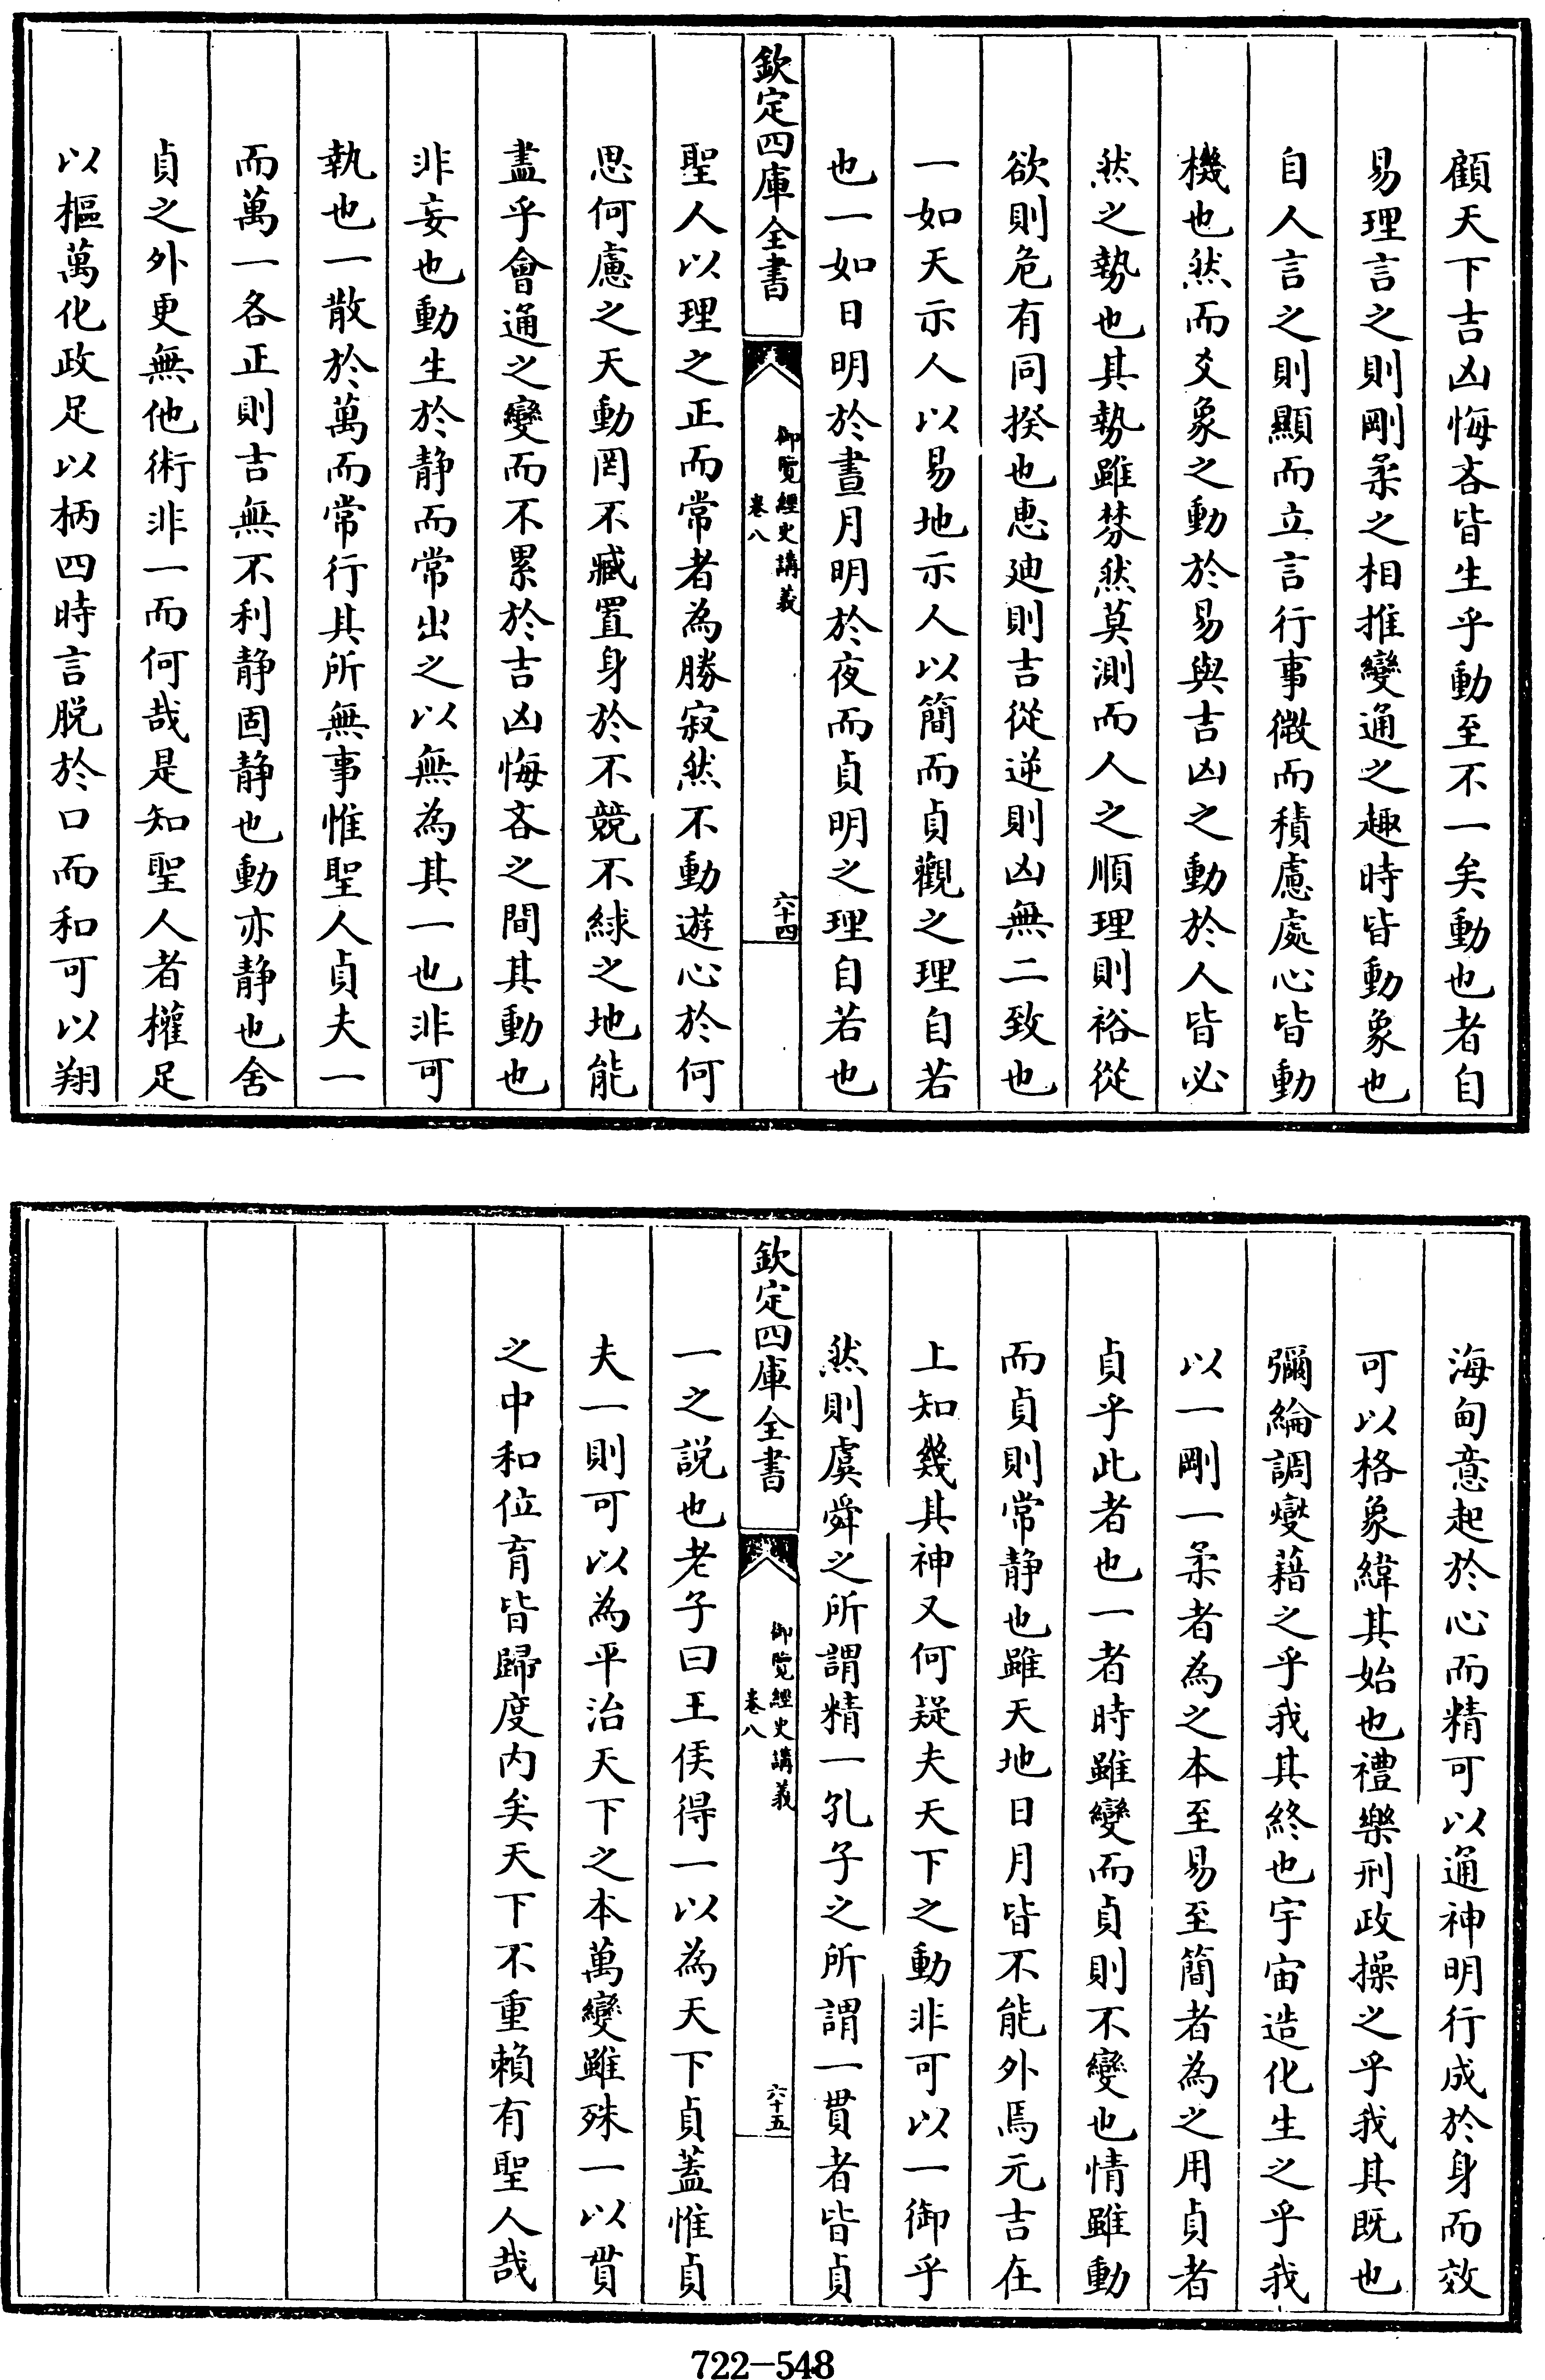 顧天下吉凶悔吝皆生乎動至不一矣動也者自
易理言之則剛柔之相推變通之趣時皆動象也
自人言之則顯而立言行事微而積慮處心皆動
機也然而爻象之動於易與吉凶之動於人皆必
然之勢也其勢雖棼然莫測而人之順理則裕從
欲則危有同揆也惠迪則吉從逆則凶無二致也
一如天示人以易地示人以簡而貞觀之理自若
也一如日明於晝月明於夜而貞明之理自若也
欽定四庫全書
御覽經史講義
卷八
六十四
聖人以理之正而常者為勝寂然不動遊心於何
思何慮之天動罔不臧置身於不競不絿之地能
盡乎會通之變而不累於吉凶悔吝之間其動也
非妄也動生於静而常出之以無為其一也非可
執也一散於萬而常行其所無事惟聖人貞夫一
而萬一各正則吉無不利静固静也動亦静也舍
貞之外更無他術非一而何哉是知聖人者權足
以樞萬化政足以柄四時言脱於口而和可以翔
海甸意起於心而精可以通神明行成於身而效
可以格象緯其始也禮樂刑政操之乎我其既也
彌綸調燮藉之乎我其終也宇宙造化生之乎我
以一剛一柔者為之本至易至簡者為之用貞者
貞乎此者也一者時雖變而貞則不變也情雖動
而貞則常静也雖天地日月皆不能外焉元吉在
上知幾其神又何疑夫天下之動非可以一御乎
然則虞舜之所謂精一孔子之所謂一貫者皆貞
欽定四庫全書
御覽經史講義
卷八
六十五
一之説也老子曰王侯得一以為天下貞蓋惟貞
夫一則可以為平治天下之本萬變雖殊一以貫
之中和位育皆歸度内矣天下不重賴有聖人哉
722-548